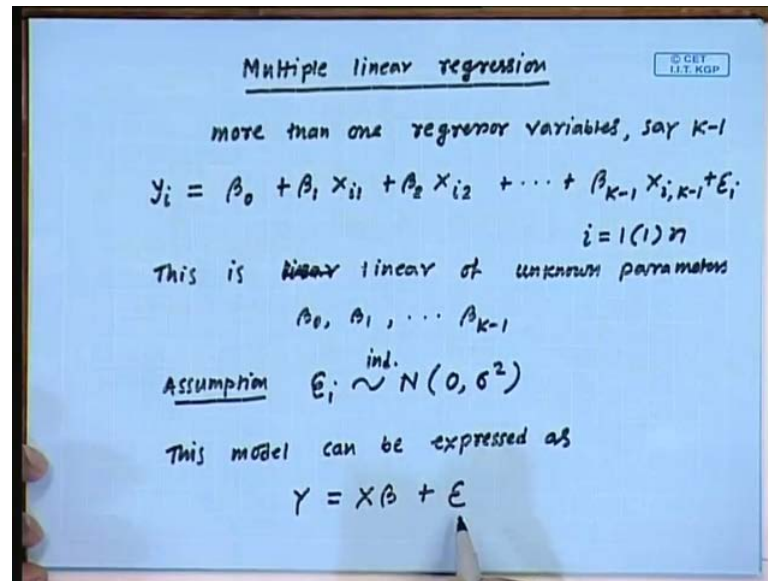 Multiple linear regression
© CET
I.I.T. KGP
more than one regressor variables, say K-1
y_i = β_0 + β_1 X_{i1} + β_2 X_{i2} + ··· + β_{K-1} X_{i,K-1} + ε_i
i = 1(1)n
This is linear of unknown parameters
β_0, β_1, ··· β_{K-1}
Assumption ε_i ~ ind. N(0, σ²)
This model can be expressed as
Y = Xβ + ε